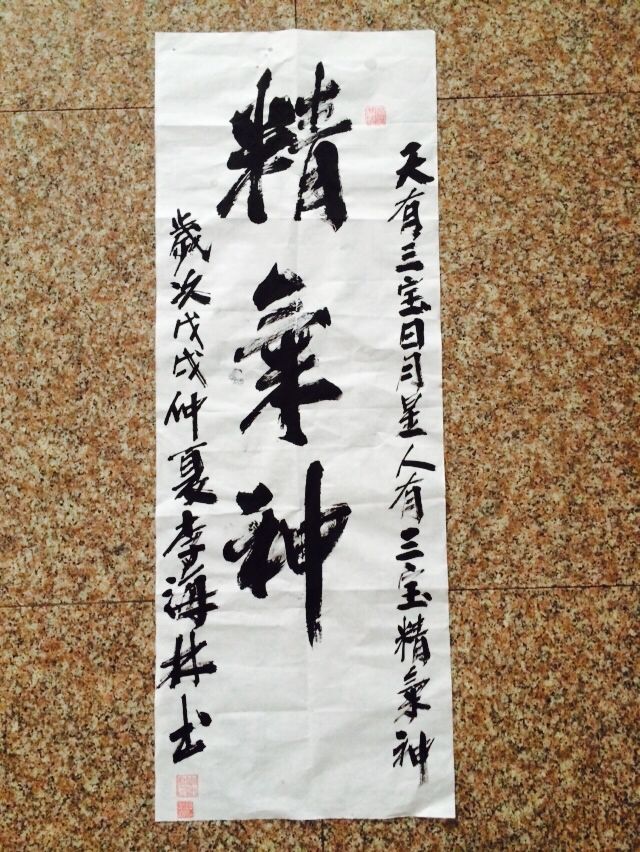 天有三宝日月星人有三宝精氣神
精氣神
歲次戊戌仲夏李海林书